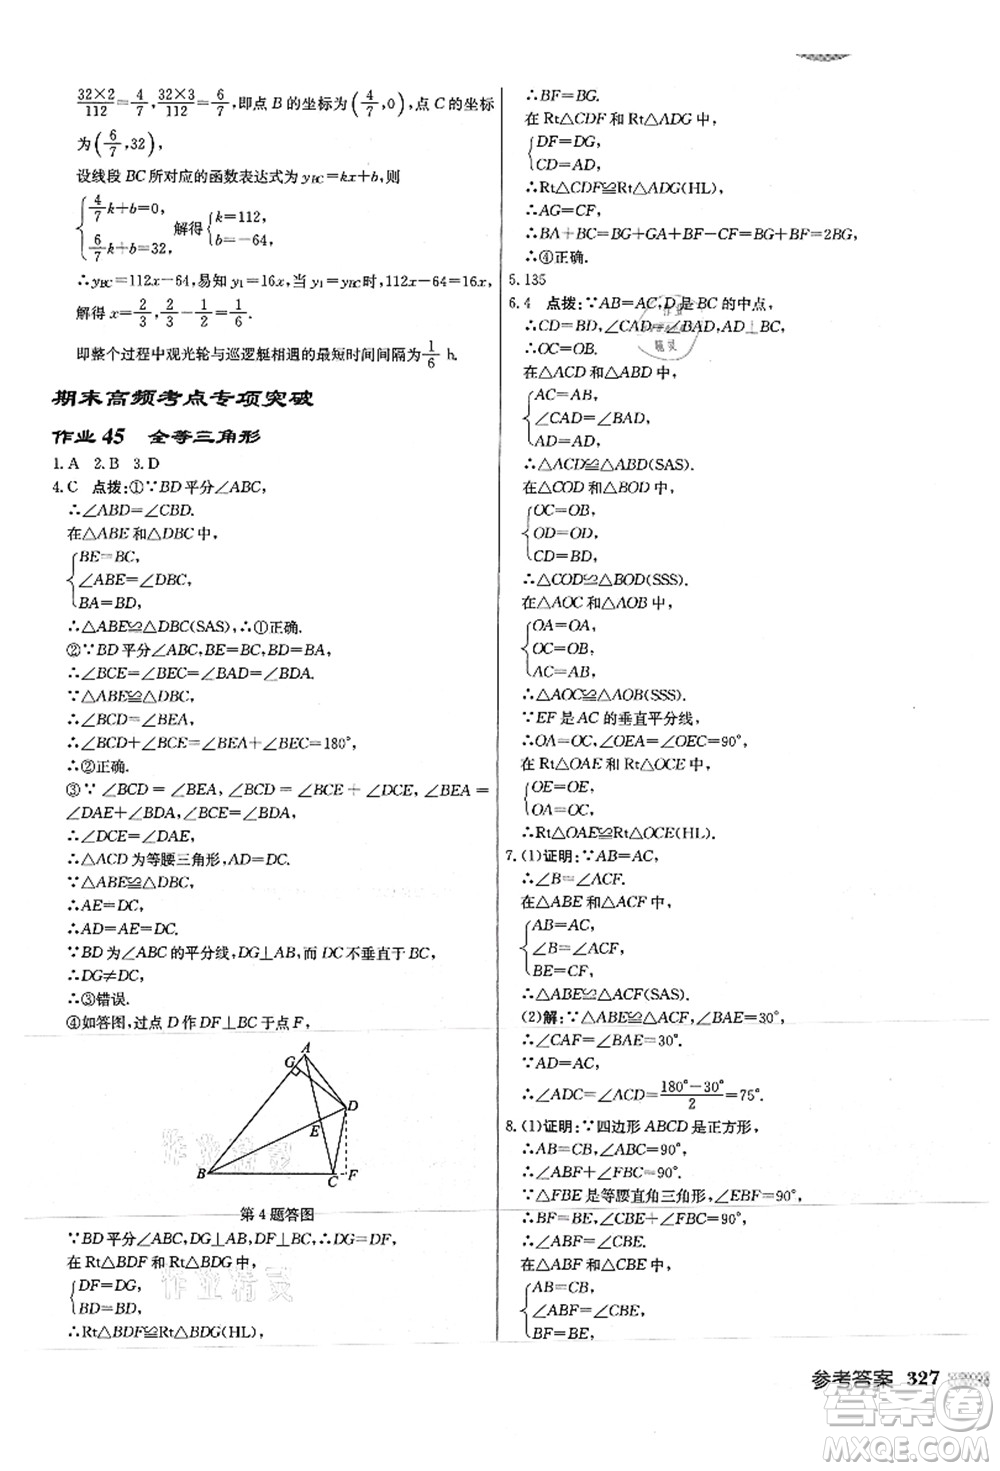 32×2/112=4/7,32×3/112=6/7,即点 B 的坐标为(4/7,0),点 C 的坐标
为(6/7,32),
设线段 BC 所对应的函数表达式为 y_BC=kx+b,则
{4/7k+b=0, 6/7k+b=32, 解得{k=112, b=-64,
∴y_BC=112x-64,易知 y₁=16x,当 y₁=y_BC时,112x-64=16x,
解得 x=2/3,2/3-1/2=1/6.
即整个过程中观光轮与巡逻艇相遇的最短时间间隔为1/6 h.
期末高频考点专项突破
作业 45 全等三角形
1. A 2. B 3. D
4. C 点拨:①∵BD平分∠ABC,
∴∠ABD=∠CBD.
在△ABE和△DBC中,
{BE=BC,
∠ABE=∠DBC,
BA=BD,
∴△ABE≌△DBC(SAS),∴①正确.
②∵BD平分∠ABC,BE=BC,BD=BA,
∴∠BCE=∠BEC=∠BAD=∠BDA.
∵△ABE≌△DBC,
∴∠BCD=∠BEA,
∴∠BCD+∠BCE=∠BEA+∠BEC=180°,
∴②正确.
③∵∠BCD=∠BEA,∠BCD=∠BCE+∠DCE,∠BEA=
∠DAE+∠BDA,∠BCE=∠BDA,
∴∠DCE=∠DAE,
∴△ACD为等腰三角形,AD=DC.
∵△ABE≌△DBC,
∴AE=DC,
∴AD=AE=DC.
∵BD为∠ABC的平分线,DG⊥AB,而DC不垂直于BC,
∴DG≠DC,
∴③错误.
④如答图,过点D作DF⊥BC于点F,
A
G
D
E
B
C
F
第4题答图
∵BD平分∠ABC,DG⊥AB,DF⊥BC,∴DG=DF,
在Rt△BDF和Rt△BDG中,
{DF=DG,
BD=BD,
∴Rt△BDF≌Rt△BDG(HL),
∴BF=BG.
在Rt△CDF和Rt△ADG中,
{DF=DG,
CD=AD,
∴Rt△CDF≌Rt△ADG(HL),
∴AG=CF,
∴BA+BC=BG+GA+BF-CF=BG+BF=2BG,
∴④正确.
5. 135
6. 4 点拨:∵AB=AC,D是BC的中点,
∴CD=BD,∠CAD=∠BAD,AD⊥BC,
∴OC=OB.
在△ACD和△ABD中,
{AC=AB,
∠CAD=∠BAD,
AD=AD,
∴△ACD≌△ABD(SAS).
在△COD和△BOD中,
{OC=OB,
OD=OD,
CD=BD,
∴△COD≌△BOD(SSS).
在△AOC和△AOB中,
{OA=OA,
OC=OB,
AC=AB,
∴△AOC≌△AOB(SSS).
∵EF是AC的垂直平分线,
∴OA=OC,∠OEA=∠OEC=90°,
在Rt△OAE和Rt△OCE中,
{OE=OE,
OA=OC,
∴Rt△OAE≌Rt△OCE(HL).
7. (1)证明:∵AB=AC,
∴∠B=∠ACF.
在△ABE和△ACF中,
{AB=AC,
∠B=∠ACF,
BE=CF,
∴△ABE≌△ACF(SAS).
(2)解:∵△ABE≌△ACF,∠BAE=30°,
∴∠CAF=∠BAE=30°.
∵AD=AC,
∴∠ADC=∠ACD=(180°-30°)/2=75°.
8. (1)证明:∵四边形ABCD是正方形,
∴AB=CB,∠ABC=90°,
∴∠ABF+∠FBC=90°.
∵△FBE是等腰直角三角形,∠EBF=90°,
∴BF=BE,∠CBE+∠FBC=90°,
∴∠ABF=∠CBE.
在△ABF和△CBE中,
{AB=CB,
∠ABF=∠CBE,
BF=BE,
参考答案 327
答案圈
MXQE.COM
作业精灵